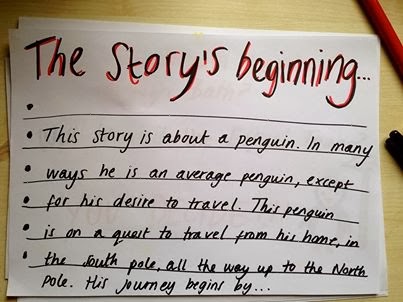 The Story's beginning...
This story is about a penguin. In many
ways he is an average penguin, except
for his desire to travel. This penguin
is on a quest to travel from his home, in
the south pole, all the way up to the North
Pole. His journey begins by...